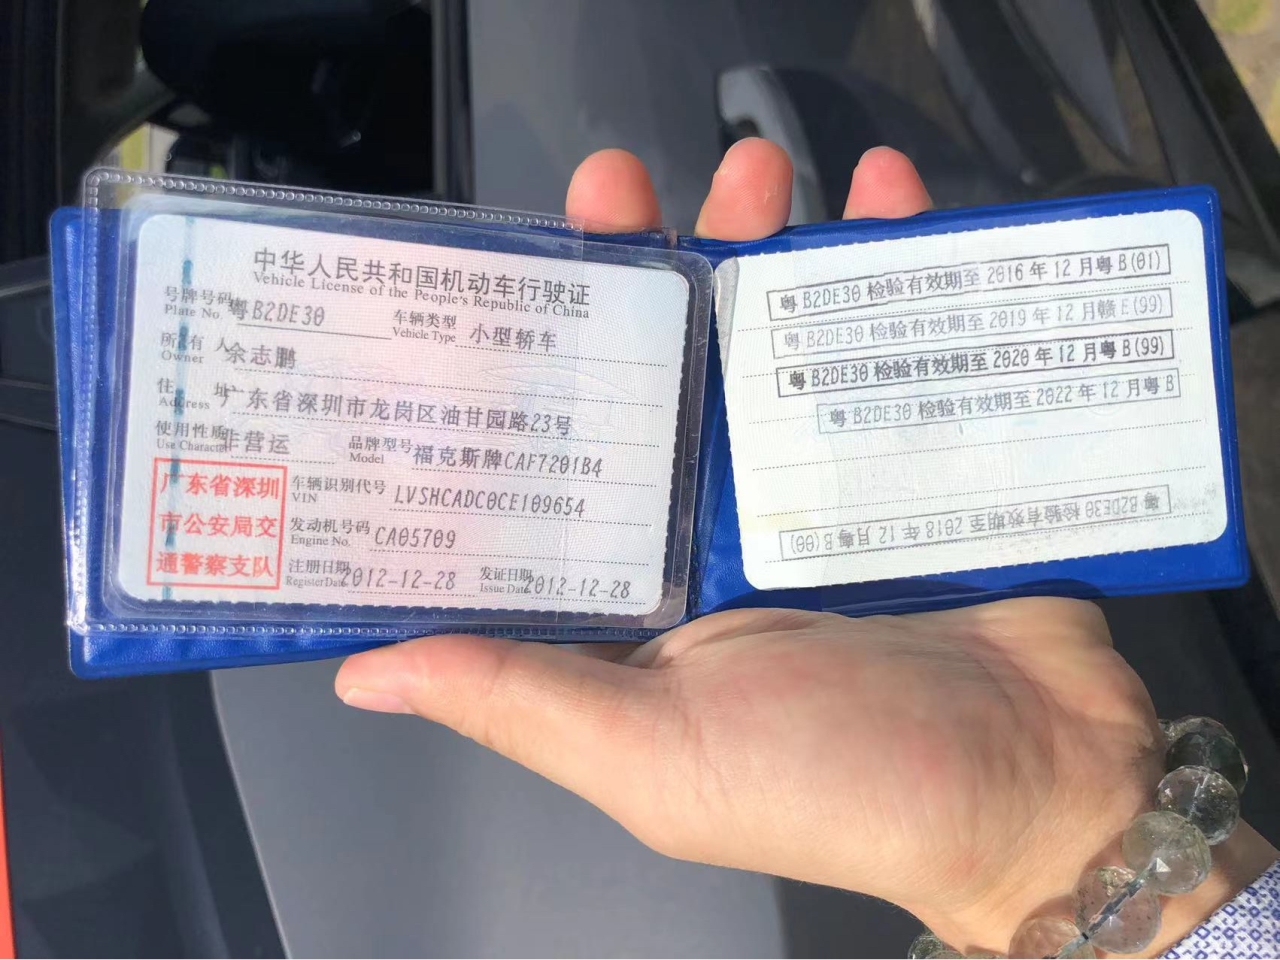 中华人民共和国机动车行驶证
Vehicle License of the People's Republic of China
号牌号码 粤B2DE30 车辆类型 小型轿车
Plate No. Vehicle Type
所有人 余志鹏
Owner
住址 广东省深圳市龙岗区油甘园路23号
Address
使用性质 非营运 品牌型号 福克斯牌CAF7201B4
Use Character Model
广东省深圳
市公安局交
通警察支队
车辆识别代号 LVSHCADC0CE109654
VIN
发动机号码 CA05709
Engine No.
注册日期 2012-12-28 发证日期 2012-12-28
Register Date Issue Date
粤B2DE30 检验有效期至 2016 年 12 月粤 B(01)
粤 B2DE30 检验有效期至 2019 年 12 月赣 E(99)
粤 B2DE30 检验有效期至 2020 年 12 月粤 B(99)
粤 B2DE30 检验有效期至 2022 年 12 月粤 B
粤 B2DE30 检验有效期至 2018 年 12 月粤 B(00)